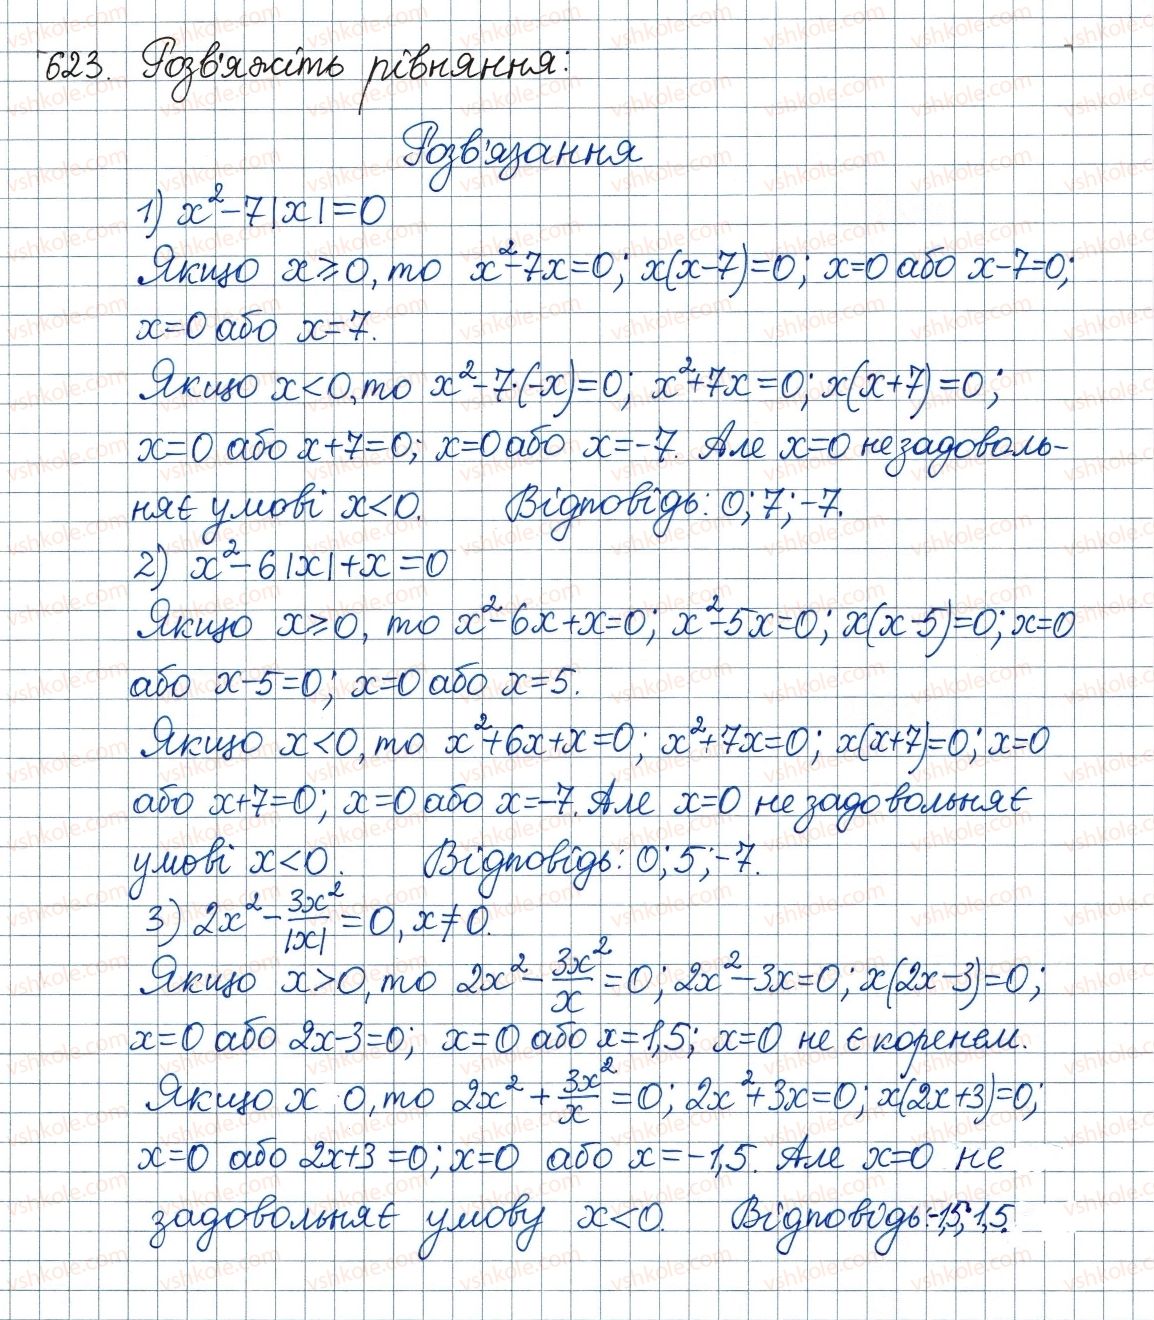 623. Розв'яжіть рівняння:
Розв'язання
1) x²-7|x|=0
Якщо x⩾0, то x²-7x=0; x(x-7)=0; x=0 або x-7=0;
x=0 або x=7.
Якщо x<0, то x²-7·(-x)=0; x²+7x=0; x(x+7)=0;
x=0 або x+7=0; x=0 або x=-7. Але x=0 не задоволь-
няє умові x<0. Відповідь: 0; 7; -7.
2) x²-6|x|+x=0
Якщо x⩾0, то x²-6x+x=0; x²-5x=0; x(x-5)=0; x=0
або x-5=0; x=0 або x=5.
Якщо x<0, то x²+6x+x=0; x²+7x=0; x(x+7)=0; x=0
або x+7=0; x=0 або x=-7. Але x=0 не задовольняє
умові x<0. Відповідь: 0; 5; -7.
3) 2x²-3x²/|x|=0, x≠0.
Якщо x>0, то 2x²-3x²/x=0; 2x²-3x=0; x(2x-3)=0;
x=0 або 2x-3=0; x=0 або x=1,5; x=0 не є коренем.
Якщо x 0, то 2x²+3x²/x=0; 2x²+3x=0; x(2x+3)=0;
x=0 або 2x+3=0; x=0 або x=-1,5. Але x=0 не
задовольняє умову x<0. Відповідь: -1,5; 1,5.